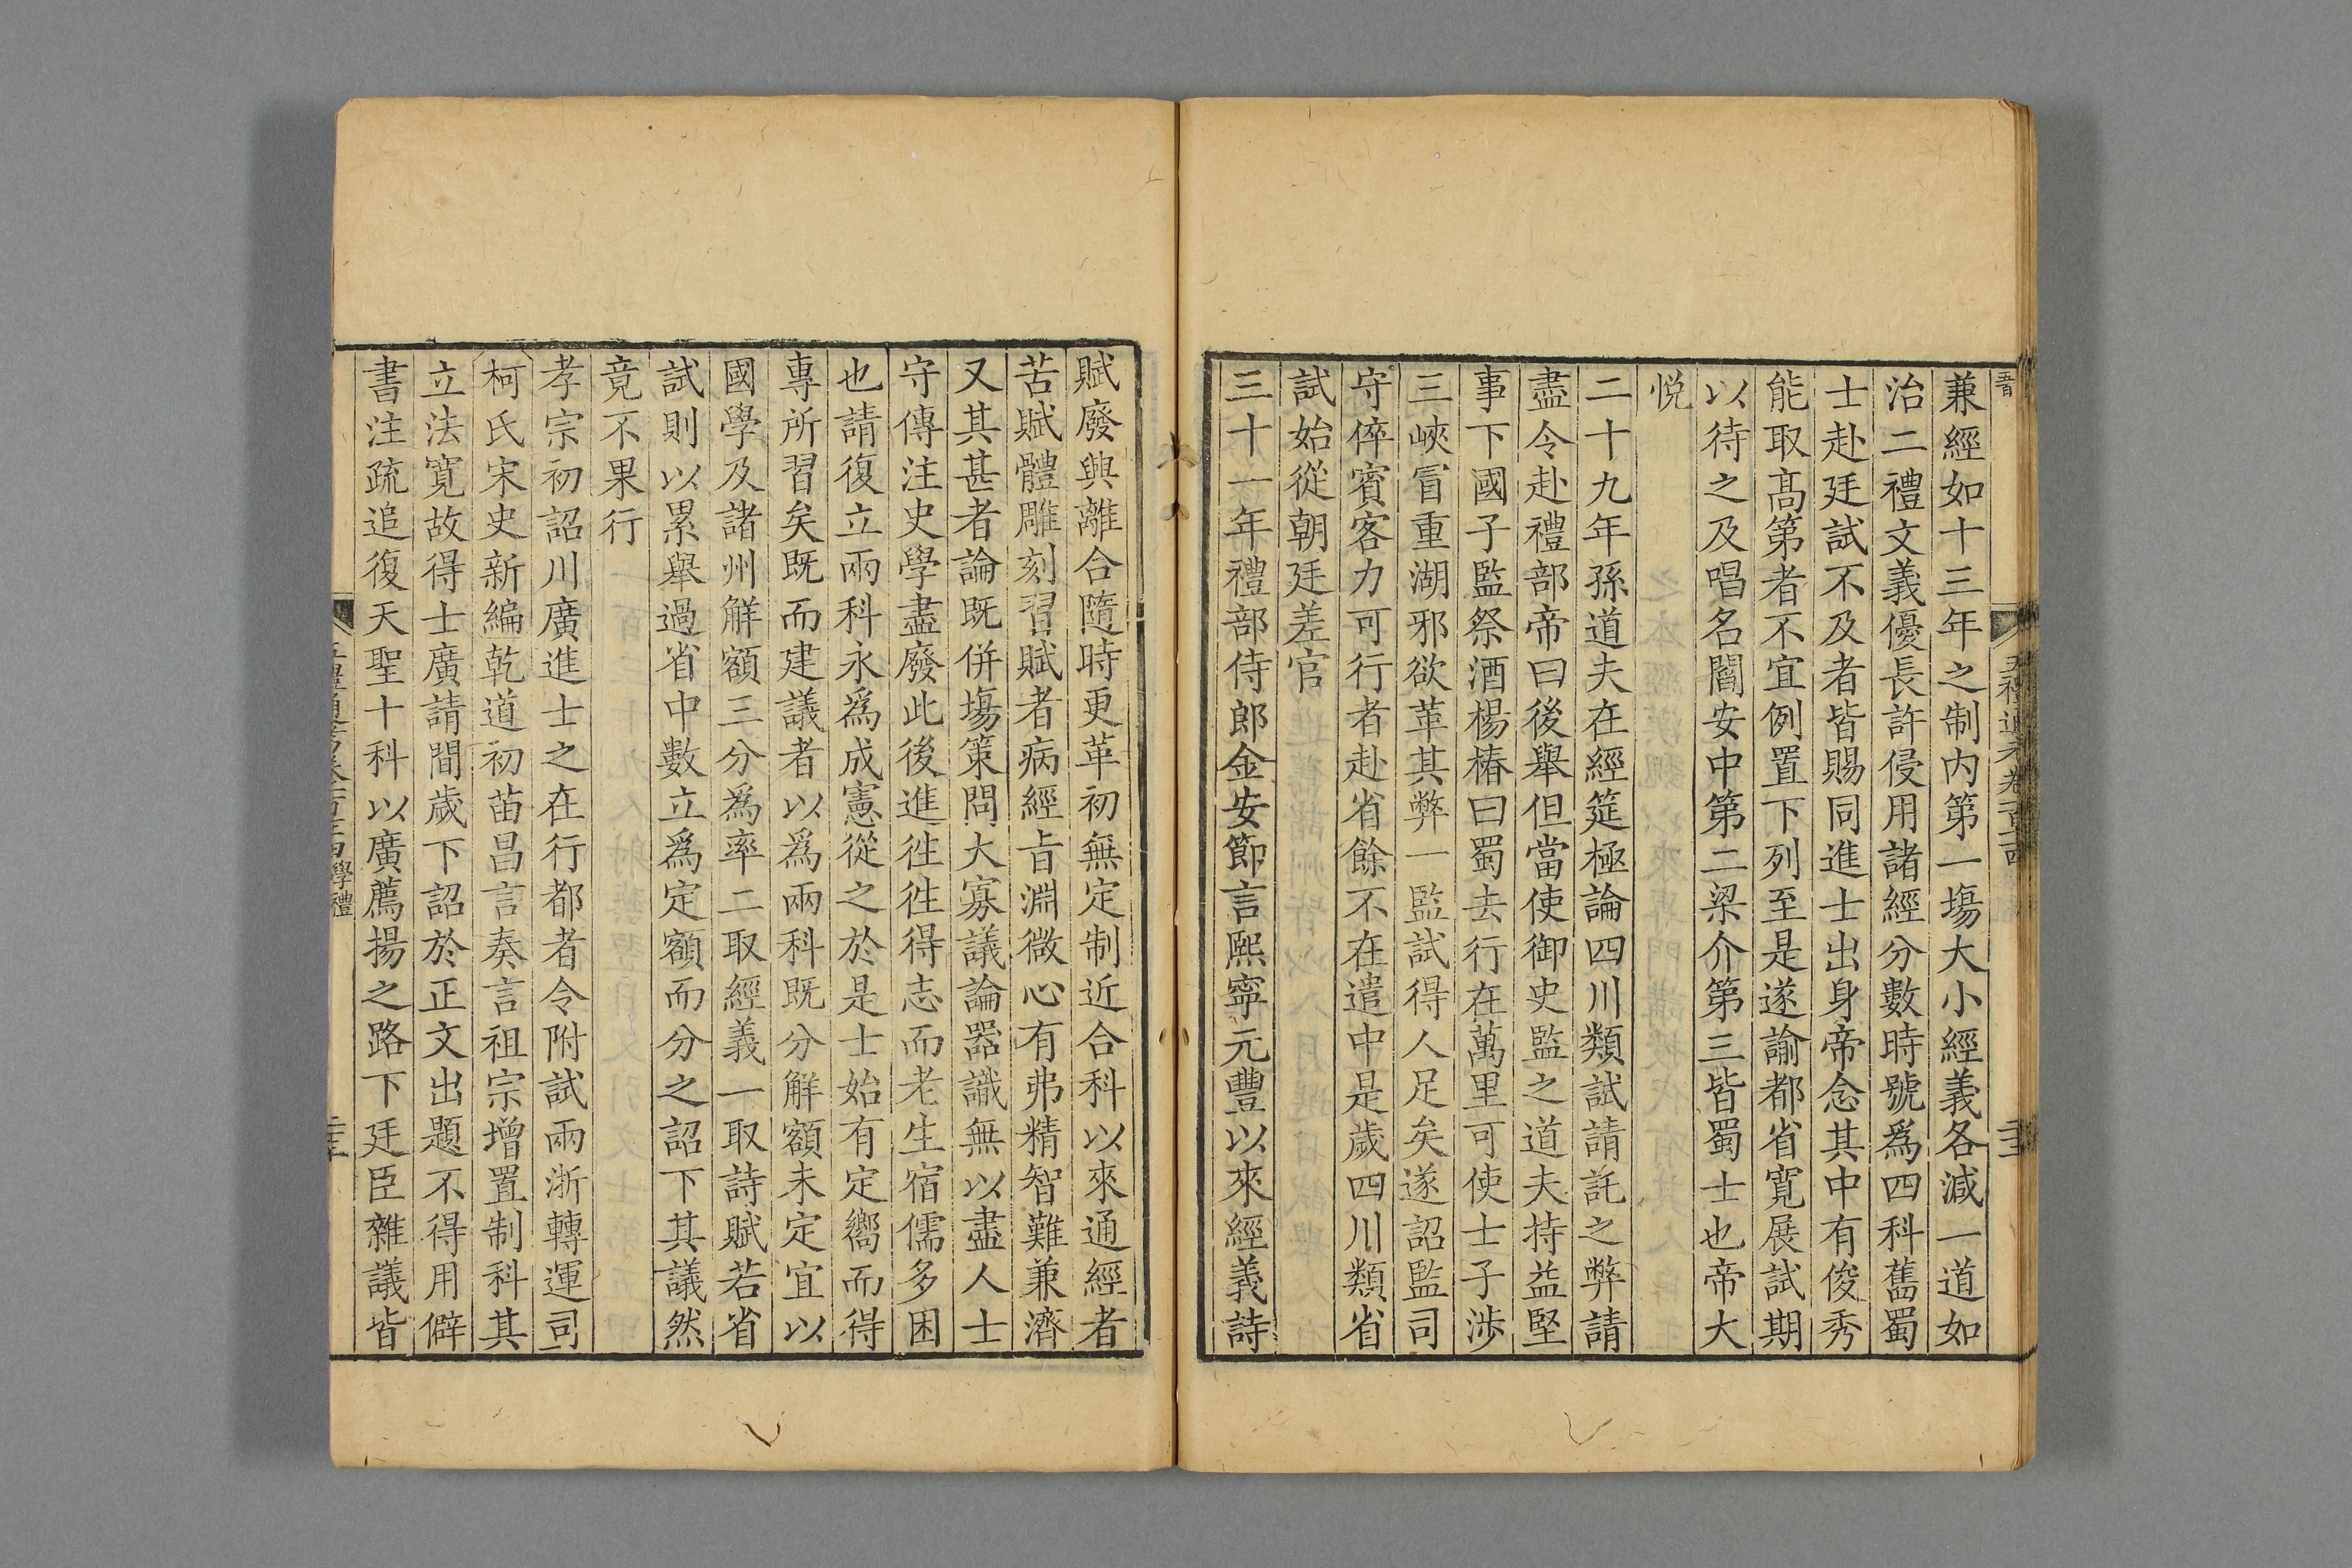 兼經如十三年之制内第一塲大小經義各減一道如
治二禮文義優長許侵用諸經分數時號爲四科舊蜀
士赴廷試不及者皆賜同進士出身帝念其中有俊秀
能取髙第者不宜例置下列至是遂諭都省寛展試期
以待之及唱名閻安中第二梁介第三皆蜀士也帝大
悦
二十九年孫道夫在經筵極論四川類試請託之弊請
盡令赴禮部帝曰後舉但當使御史監之道夫持益堅
事下國子監祭酒楊椿曰蜀去行在萬里可使士子渉
三峽冒重湖邪欲革其弊一監試得人足矣遂詔監司
守倅賓客力可行者赴省餘不在遣中是歲四川類省
試始從朝廷差官
三十一年禮部侍郎金安節言熙寧元豐以來經義詩
賦廢興離合隨時更革初無定制近合科以來通經者
苦賦體雕刻習賦者病經旨淵微心有弗精智難兼濟
又其甚者論既併塲策問大寡議論器識無以盡人士
守傳注史學盡廢此後進徃徃得志而老生宿儒多困
也請復立兩科永爲成憲從之於是士始有定嚮而得
專所習矣既而建議者以爲兩科既分解額未定宜以
國學及諸州解額三分爲率二取經義一取詩賦若省
試則以累舉過省中數立爲定額而分之詔下其議然
竟不果行
孝宗初詔川廣進士之在行都者令附試兩浙轉運司
柯氏宋史新編乾道初苗昌言奏言祖宗增置制科其
立法寛故得士廣請間歲下詔於正文出題不得用僻
書注疏追復天聖十科以廣薦揚之路下廷臣雜議皆
學禮